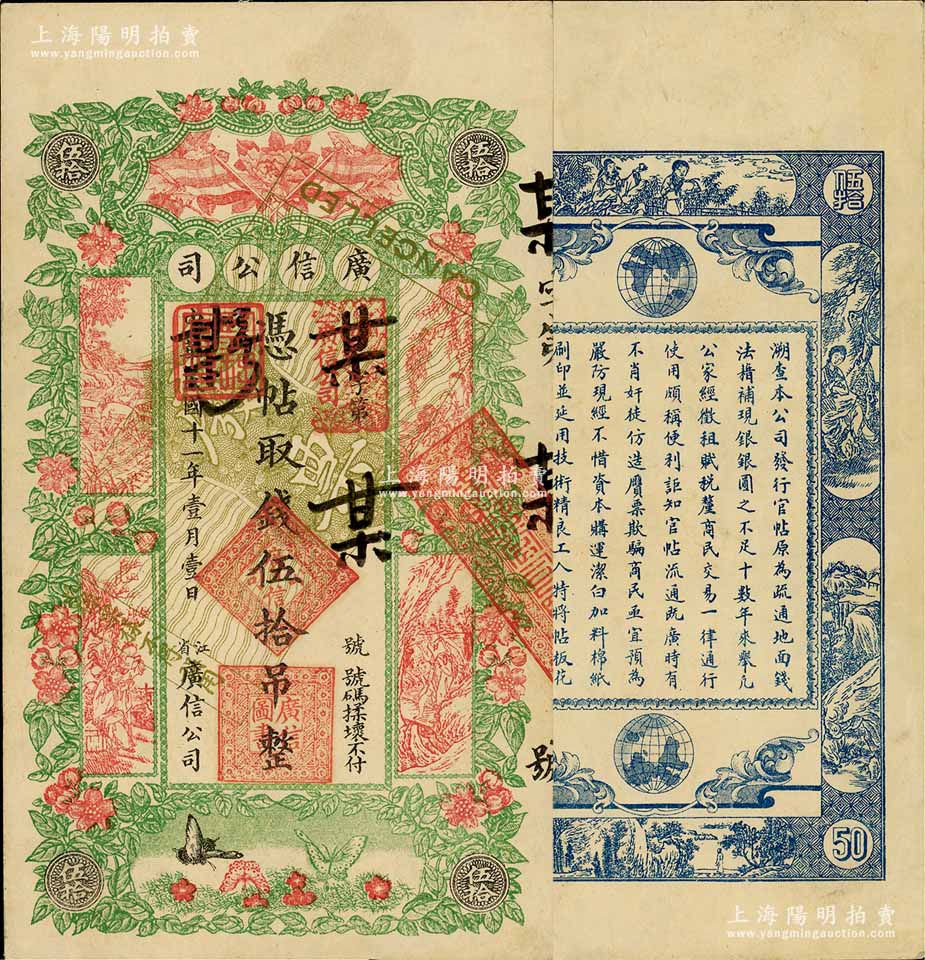 上海陽明拍賣
www.yangmingauction.com
伍拾
伍拾
伍拾
CANCELLED
廣信公司
某字第
某
號 號碼揉壞不付
憑帖取錢伍拾吊整
國十一年壹月壹日
江省廣信公司
廣信
圖
某
號
溯查本公司發行官帖原為疏通地面錢
法措補現銀銀圓之不足十數年來舉凡
公家經徵租賦稅釐商民交易一律通行
使用頗稱便利詎知官帖流通既廣時有
不肖奸徒仿造贋票欺騙商民亟宜預為
嚴防現經不惜資本購運潔白加料棉紙
刷印並延用技術精良工人特將帖板花
上海陽明拍賣
www.yangmingauction.com
伍拾
伍拾
50
上海陽明拍賣
www.yangmingauction.com